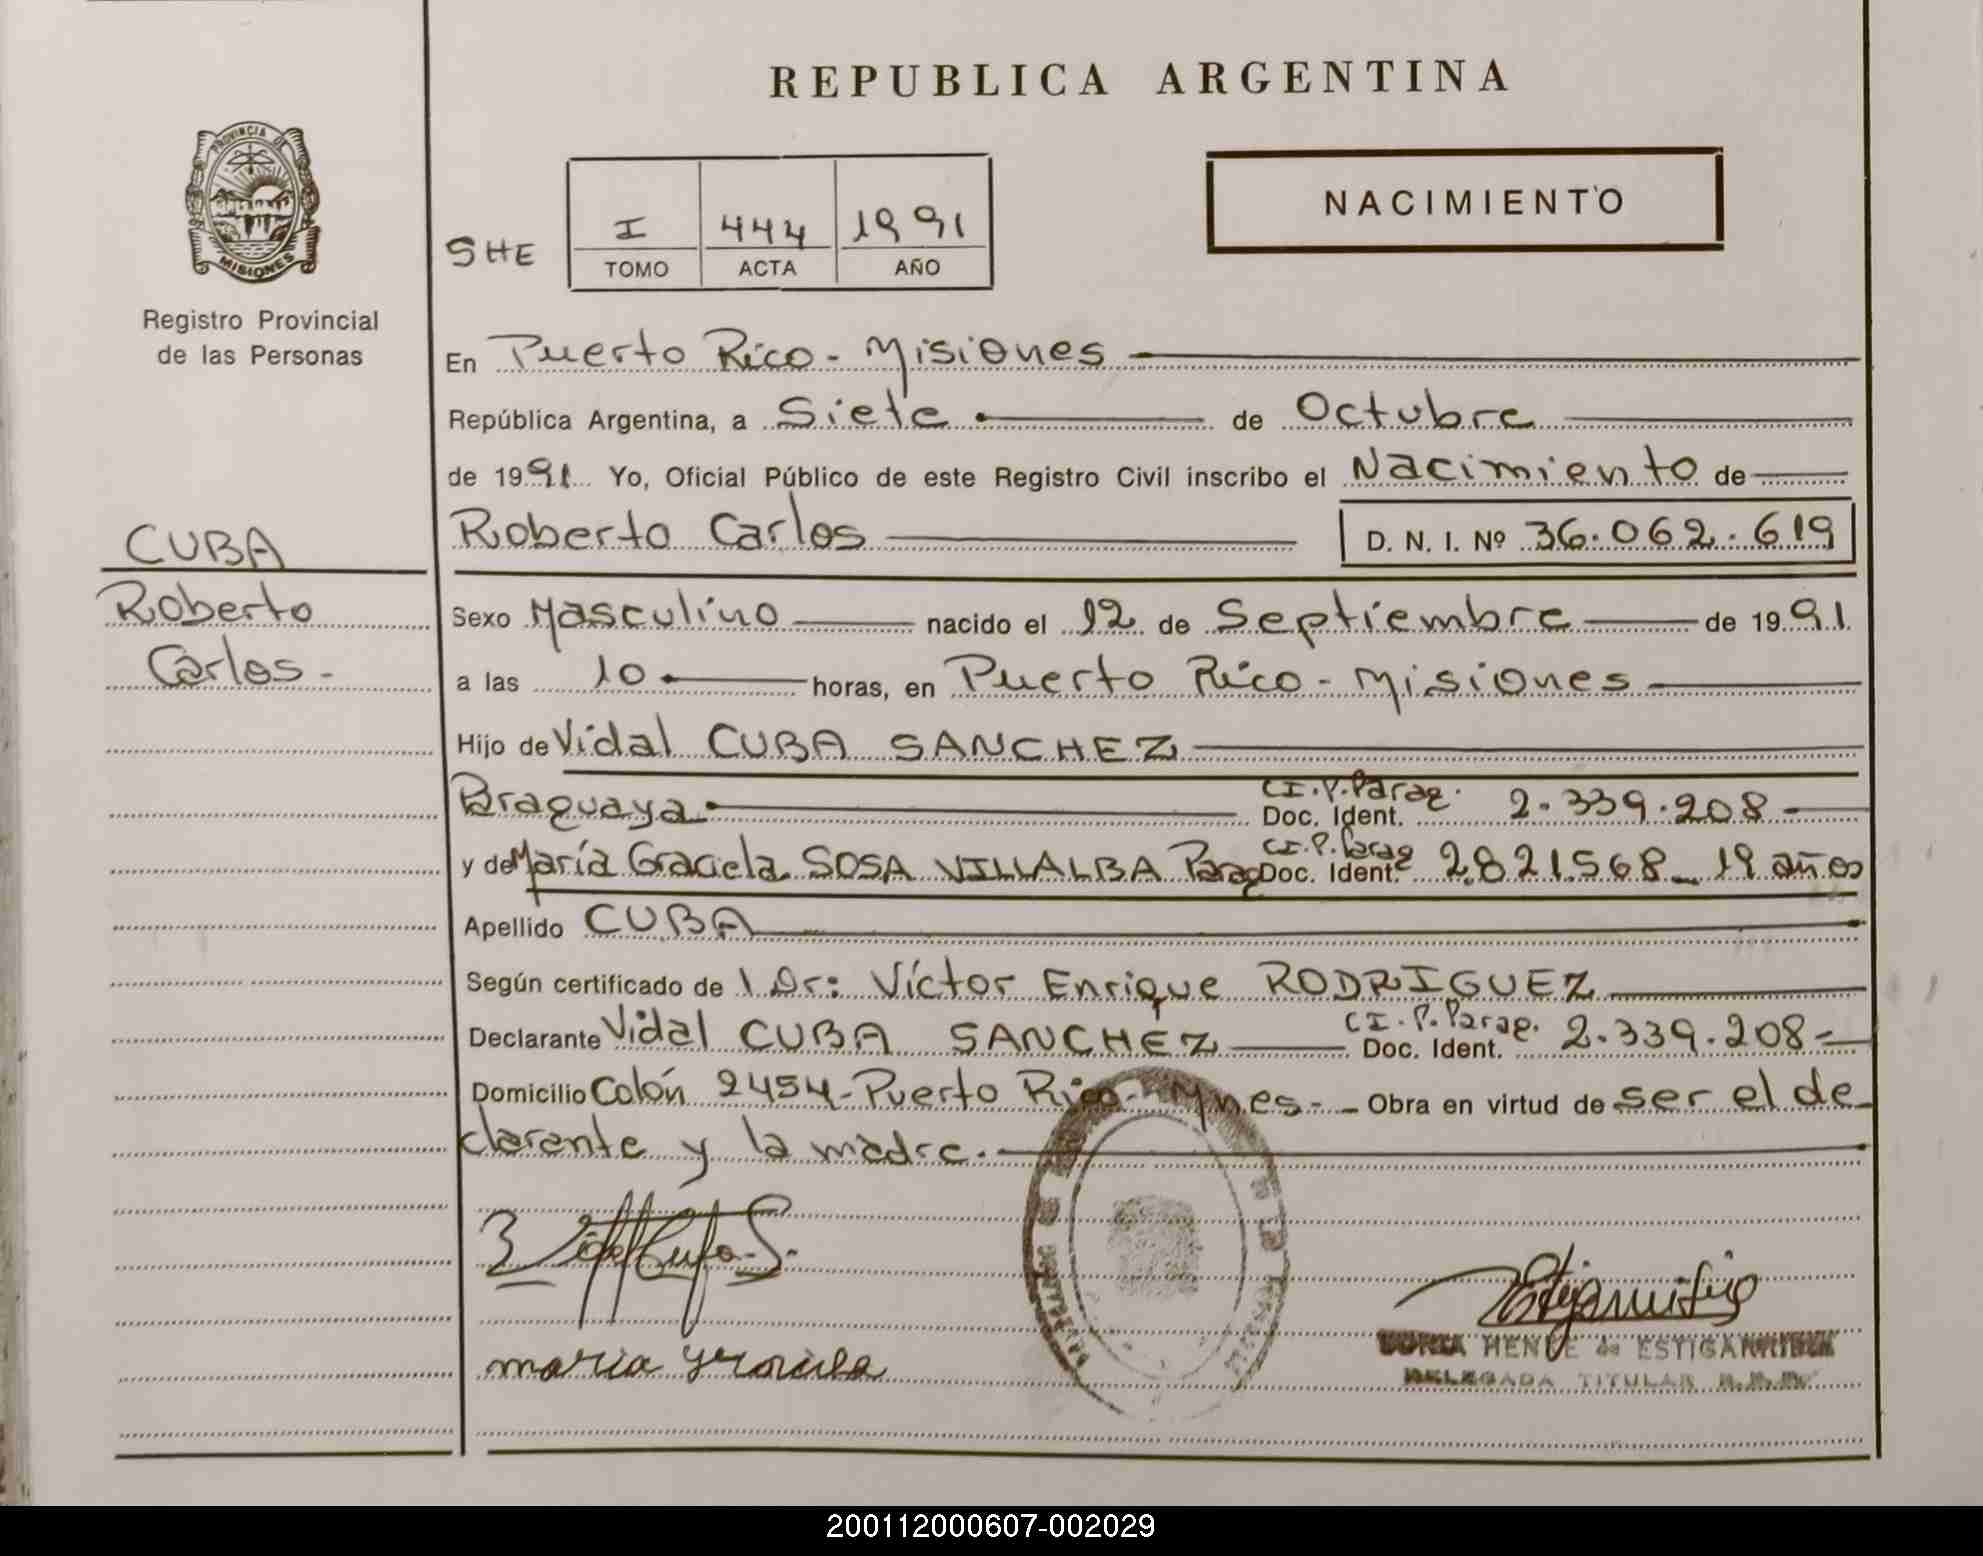 REPUBLICA ARGENTINA
PROVINCIA DE
MISIONES
Registro Provincial
de las Personas
SHE
I 444 1991
TOMO ACTA AÑO
NACIMIENTO
En Puerto Rico - Misiones
República Argentina, a Siete de Octubre
de 1991 Yo, Oficial Público de este Registro Civil inscribo el Nacimiento de
Roberto Carlos D. N. I. Nº 36.062.619
CUBA
Roberto
Carlos -
Sexo Masculino nacido el 12 de Septiembre de 1991
a las 10 horas, en Puerto Rico - Misiones
Hijo de Vidal CUBA SANCHEZ
Paraguaya C.I.P. Parag. Doc. Ident. 2.339.208 -
y de María Graciela SOSA VILLALBA Parag C.I.P. Parag Doc. Ident. 2.821.568_ 19 años
Apellido CUBA
Según certificado de 1 Dr: Víctor Enrique RODRIGUEZ
Declarante Vidal CUBA SANCHEZ C.I.P. Parag. Doc. Ident. 2.339.208 -
Domicilio Colón 2454 - Puerto Rico - Mnes - Obra en virtud de ser el de
clarante y la madre.
maria graciela
HENTE de ESTIGARRIBIA
DELEGADA TITULAR
200112000607-002029